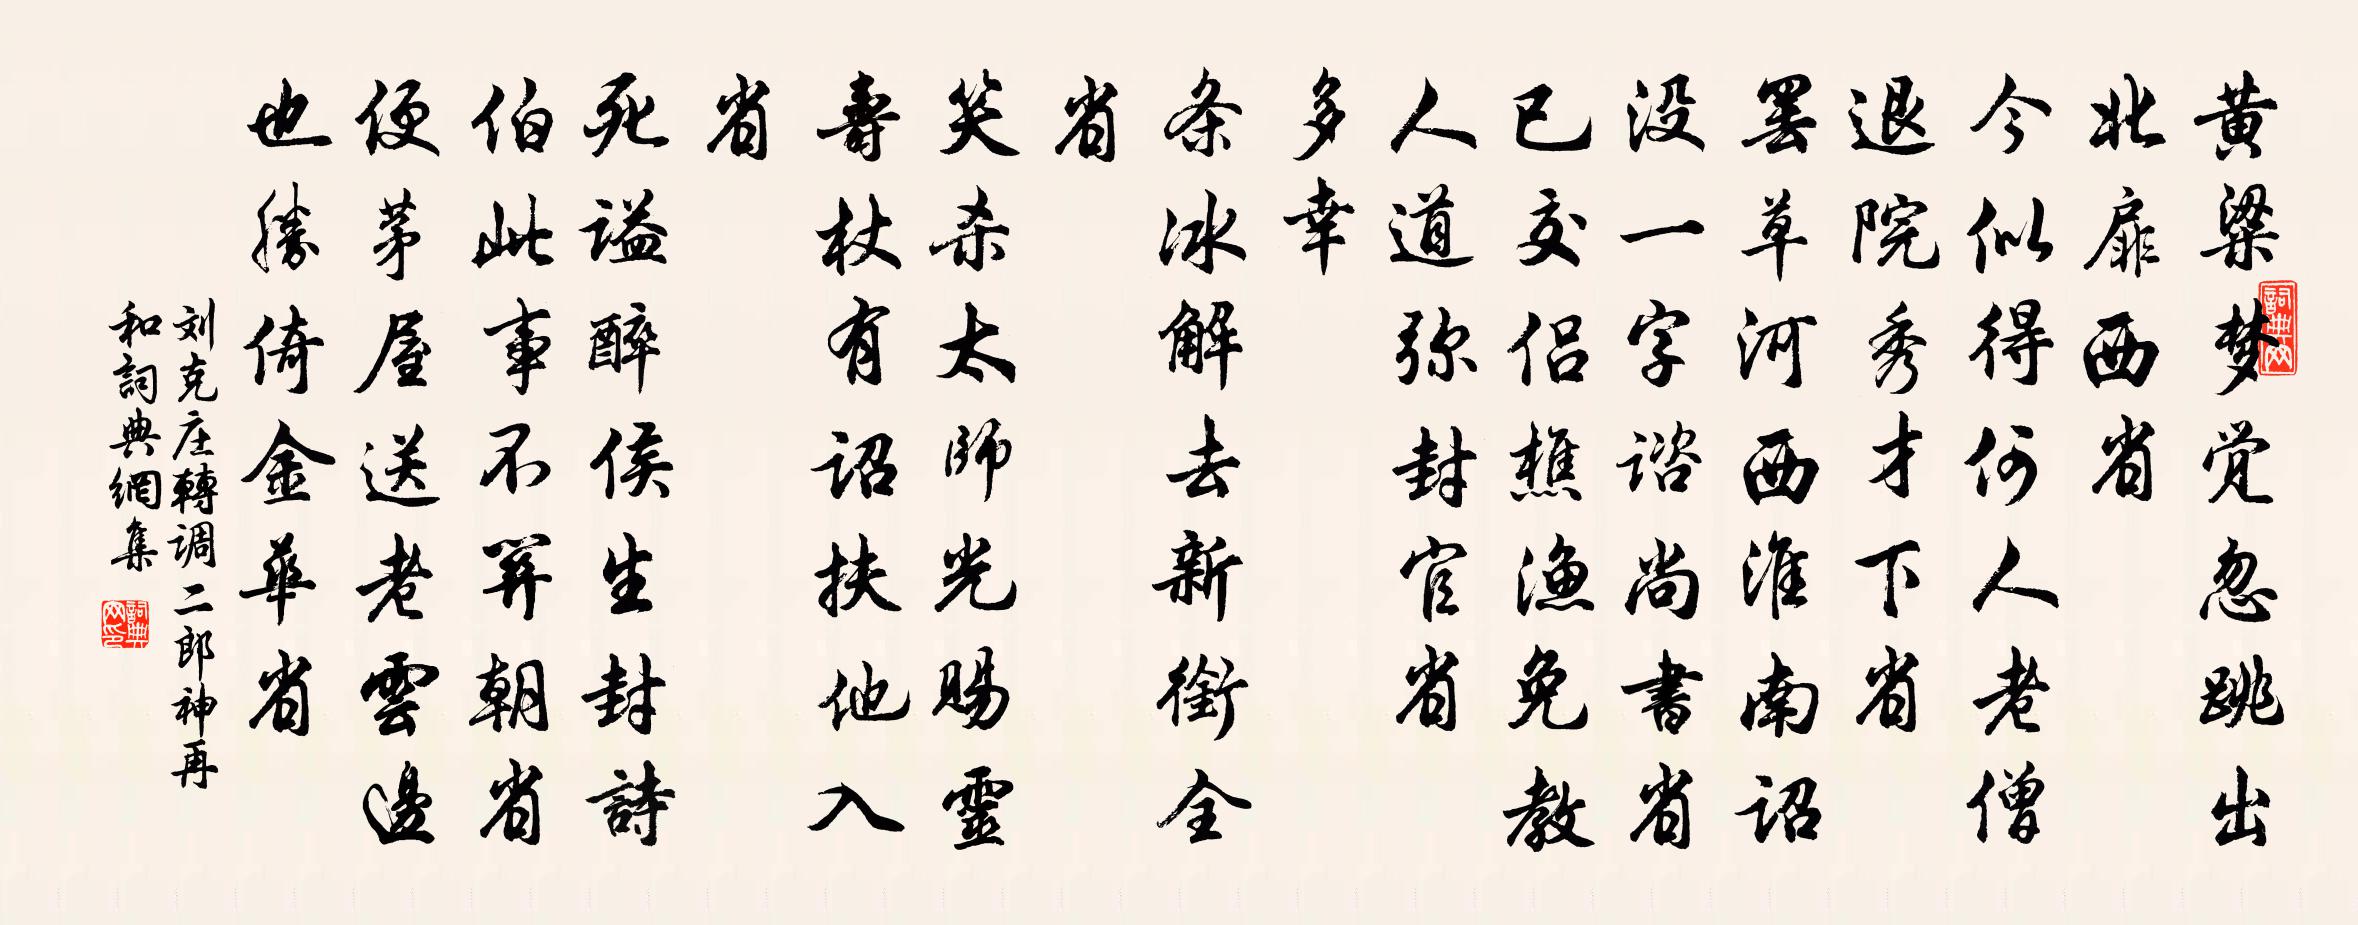 黄粱梦觉忽跳出
北扉西省
今似得何人老僧
退院秀才下省
罢草河西淮南诏
没一字谘尚書省
已交侣樵渔免教
人道弥封官省
多幸
条冰解去新銜全
省
笑杀太师光赐靈
壽杖有诏扶他入
省
死谥醉侯生封詩
伯此事不関朝省
便茅屋送老雲邊
也勝倚金華省
刘克庄轉调二郎神再
和詞典網集
詞典网
詞典网印